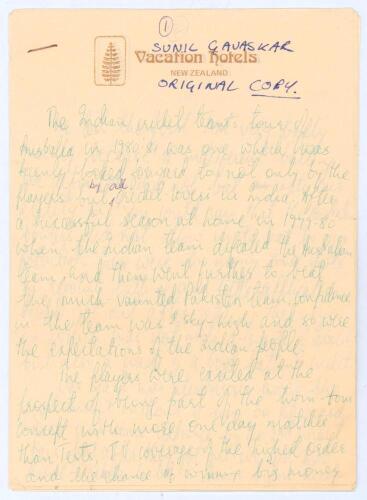 1
SUNIL GAVASKAR
Vacation hotels
NEW ZEALAND
ORIGINAL COPY.
The Indian cricket team's tour of
Australia in 1980-81 was one which was
being looked forward to, not only by the
players but by all cricket lovers in India. After
a successful season at home in 1979-80
when the Indian team defeated the Australian
team, and then went further to beat
the much vaunted Pakistan team, confidence
in the team was sky-high and so were
the expectations of the Indian people.
The players were excited at the
prospect of being part of the twin-tour
concept with more one day matches
than Tests, T.V. coverage of the highest order
and the chance of winning big money